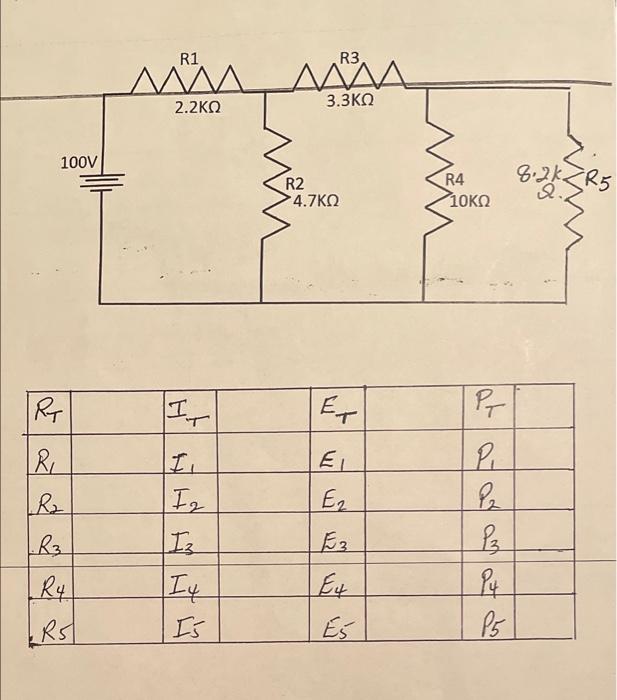 R1
R3
2.2KΩ
3.3KΩ
100V
R2
4.7KΩ
R4
10KΩ
8.2k
Ω.
R5
RT IT ET PT
R1 I1 E1 P1
R2 I2 E2 P2
R3 I3 E3 P3
R4 I4 E4 P4
R5 I5 E5 P5